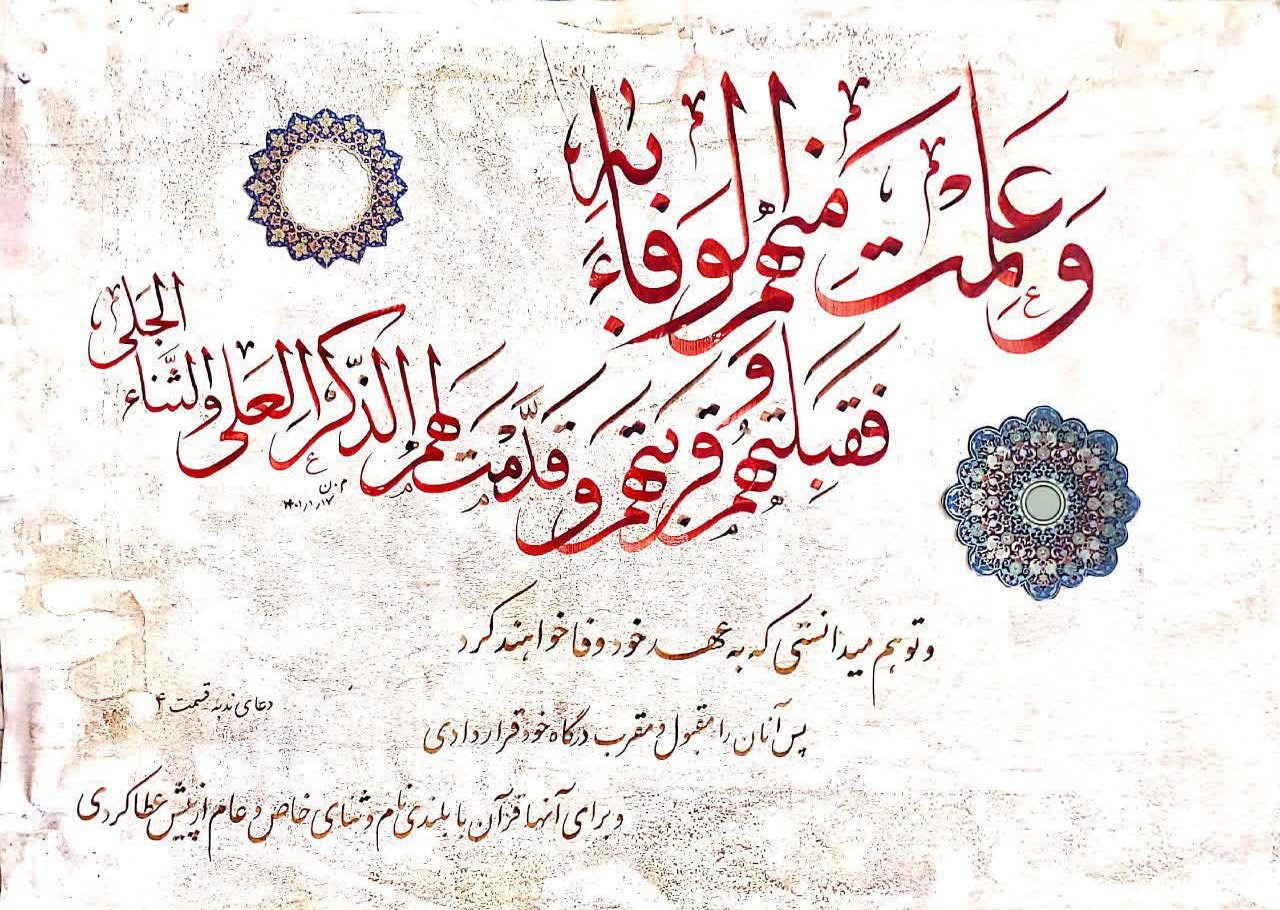 وَ عَلِمْتَ مِنْهُمُ الْوَفَاءَ بِهِ
فَقَبِلْتَهُمْ وَ قَرَّبْتَهُمْ وَ قَدَّمْتَ لَهُمُ الذِّكْرَ الْعَلِیَّ وَ الثَّنَاءَ الْجَلِیَّ
م.ن
۱۴۰۱/۱/۱۷
و تو هم میدانستی که به عهد خود وفا خواهند کرد
دعای ندبه قسمت ۴
پس آنان را مقبول و مقرب درگاه خود قرار دادی
و برای آنها قرآن با بلندی نام و ثنای خاص و عام از پیش عطا کردی